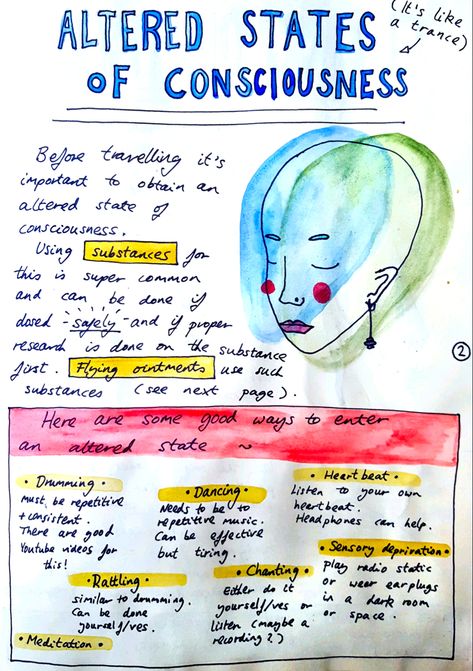 ALTERED STATES
OF CONSCIOUSNESS
(It's like
a trance)
Before travelling it's
important to obtain an
altered state of
consciousness.
Using substances for
this is super common
and can be done if
dosed -safely- and if proper
research is done on the substance
first. Flying ointments use such
substances (see next page).
2
Here are some good ways to enter
an altered state ~
• Drumming •
Must be repetitive
+ consistent.
There are good
Youtube videos for
this!
• Rattling •
similar to drumming.
Can be done
yourself/ves.
• Meditation •
• Dancing •
Needs to be to
repetitive music.
Can be effective
but tiring.
• Chanting •
Either do it
yourself/ves or
listen (maybe a
recording?)
• Heart beat •
Listen to your own
heartbeat.
Headphones can help.
• Sensory deprivation •
Play radio static
or wear earplugs
in a dark room
or space.